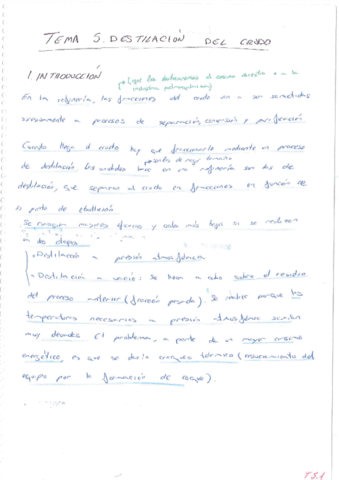 TEMA 5. DESTILACIÓN DEL CRUDO
1. INTRODUCCIÓN
industria petroquímica)
En la refinería, las fracciones del crudo van a ser sometidas
a procesos de separación, conversión y purificación
Cuando llega el crudo hay que fraccionarlo mediante un proceso
de destilación. Las unidades base en una refinería son las de
destilación, que separan el crudo en fracciones en función de
punto de ebullición
Se consiguen mayores eficacias y costes más bajos si se realizan
en dos etapas
- Destilación a presión atmosférica
- Destilación a vacío: Se lleva a cabo sobre el residuo
del proceso anterior (fracción pesada). Se realiza porque las
temperaturas necesarias a presión atmosférica serían
muy elevadas. El problema, a parte de un mayor consumo
energético, es que se daría craqueo térmico (ensuciamiento del
equipo por la formación de coque).